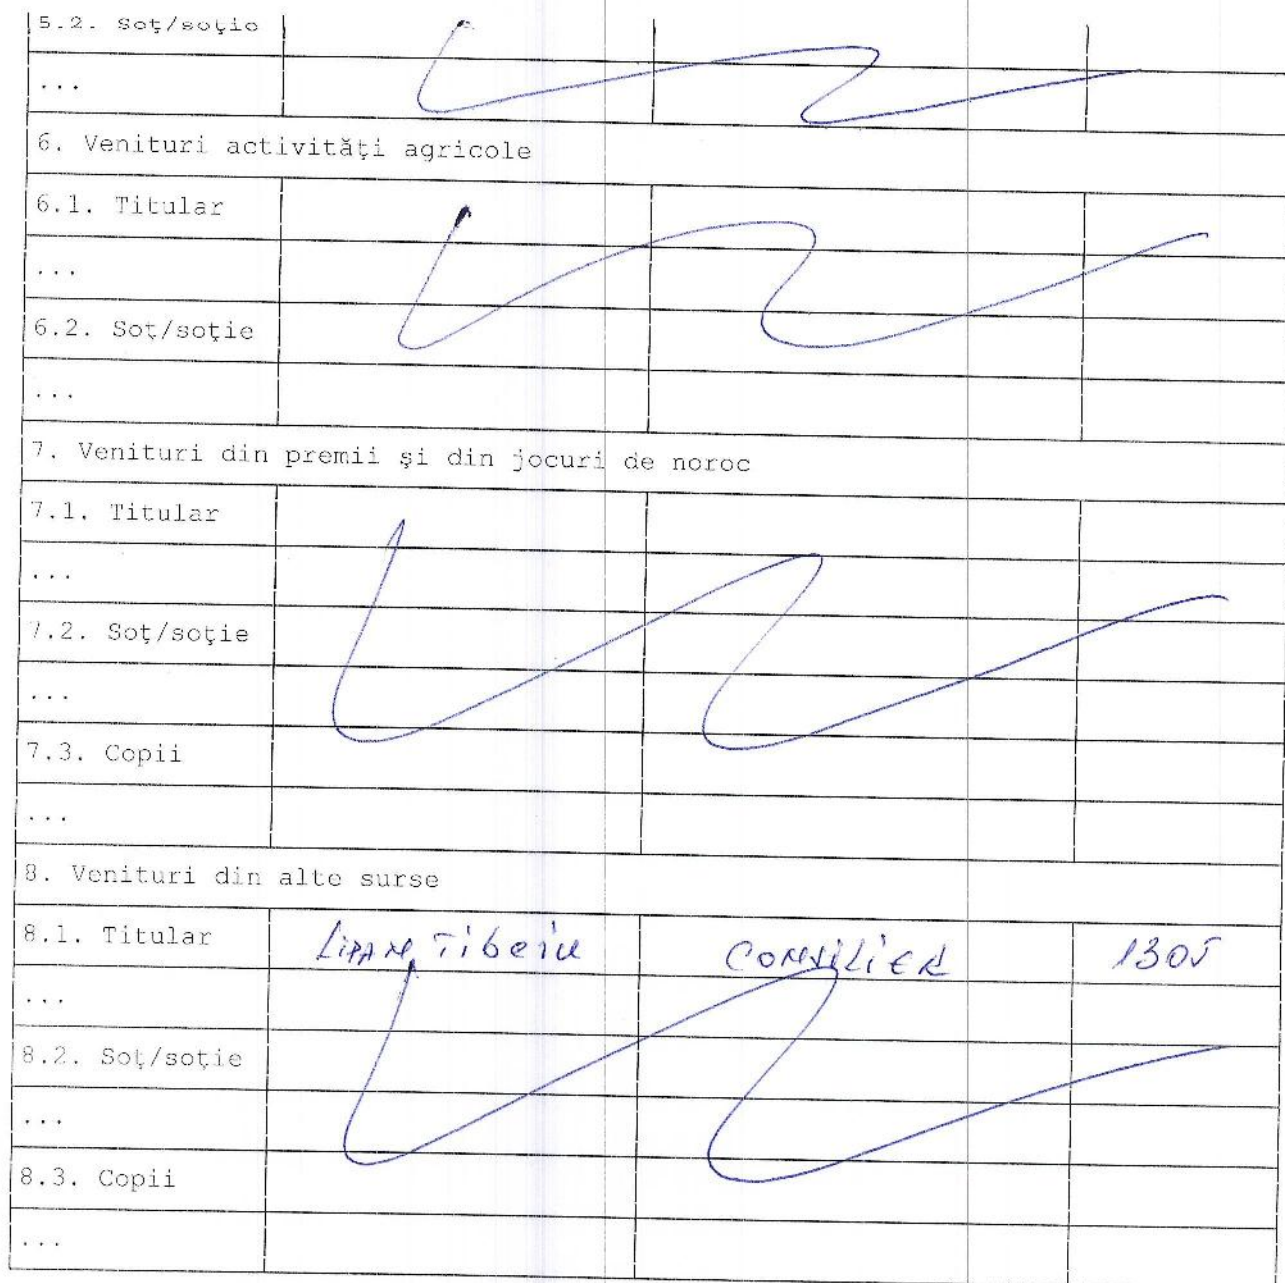 5.2. Soţ/soţie
...
6. Venituri activităţi agricole
6.1. Titular
...
6.2. Soţ/soţie
...
7. Venituri din premii şi din jocuri de noroc
7.1. Titular
...
7.2. Soţ/soţie
...
7.3. Copii
...
8. Venituri din alte surse
8.1. Titular LIPAN Tibeiu CONSILIER 1305
...
8.2. Soţ/soţie
...
8.3. Copii
...